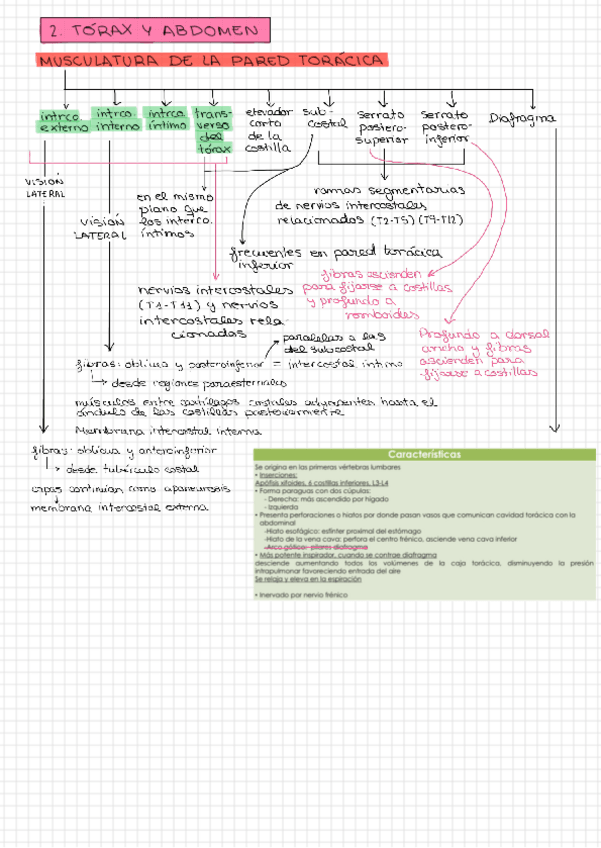 2. TÓRAX Y ABDOMEN
MUSCULATURA DE LA PARED TORÁCICA
intrco. externo
intrco. interno
intrco. íntimo
trans-
verso
del
tórax
elevador
corto
de la
costilla
sub-
costal
serrato
postero-
superior
serrato
postero-
inferior
Diafragma
VISIÓN
LATERAL
VISIÓN
LATERAL
en el mismo
plano que
los interco.
íntimos
ramas segmentarias
de nervios intercostales
relacionados (T2-T5) (T9-T12)
frecuentes en pared torácica
inferior
nervios intercostales
(T1-T11) y nervios
intercostales rela-
cionados
fibras ascienden
para fijarse a costillas
y profundo a
romboides
Profundo a dorsal
ancho y fibras
ascienden para
fijarse a costillas
paralelas a las
del subcostal
fibras: oblicua y posteroinferior = intercosta íntimo
desde regiones paraesternales
músculos entre cartílagos costales adyacentes hasta el
ángulo de las costillas posteriormente
Membrana intercostal interna
fibras: oblicua y anteroinferior
desde tubérculo costal
capas continúan como aponeurosis
membrana intercostal externa
Características
Se origina en las primeras vértebras lumbares
• Inserciones:
Apófisis xifoides, 6 costillas inferiores, L3-L4
• Forma paraguas con dos cúpulas:
- Derecha: más ascendido por hígado
- Izquierda
• Presenta perforaciones o hiatos por donde pasan vasos que comunican cavidad torácica con la
abdominal
-Hiato esofágico: esfínter proximal del estómago
-Hiato de la vena cava: perfora el centro frénico, asciende vena cava inferior
-Arco gótico: pilares diafragma
• Más potente inspirador, cuando se contrae diafragma
desciende aumentando todos los volúmenes de la caja torácica, disminuyendo la presión
intrapulmonar favoreciendo entrada del aire
Se relaja y eleva en la espiración
• Inervado por nervio frénico